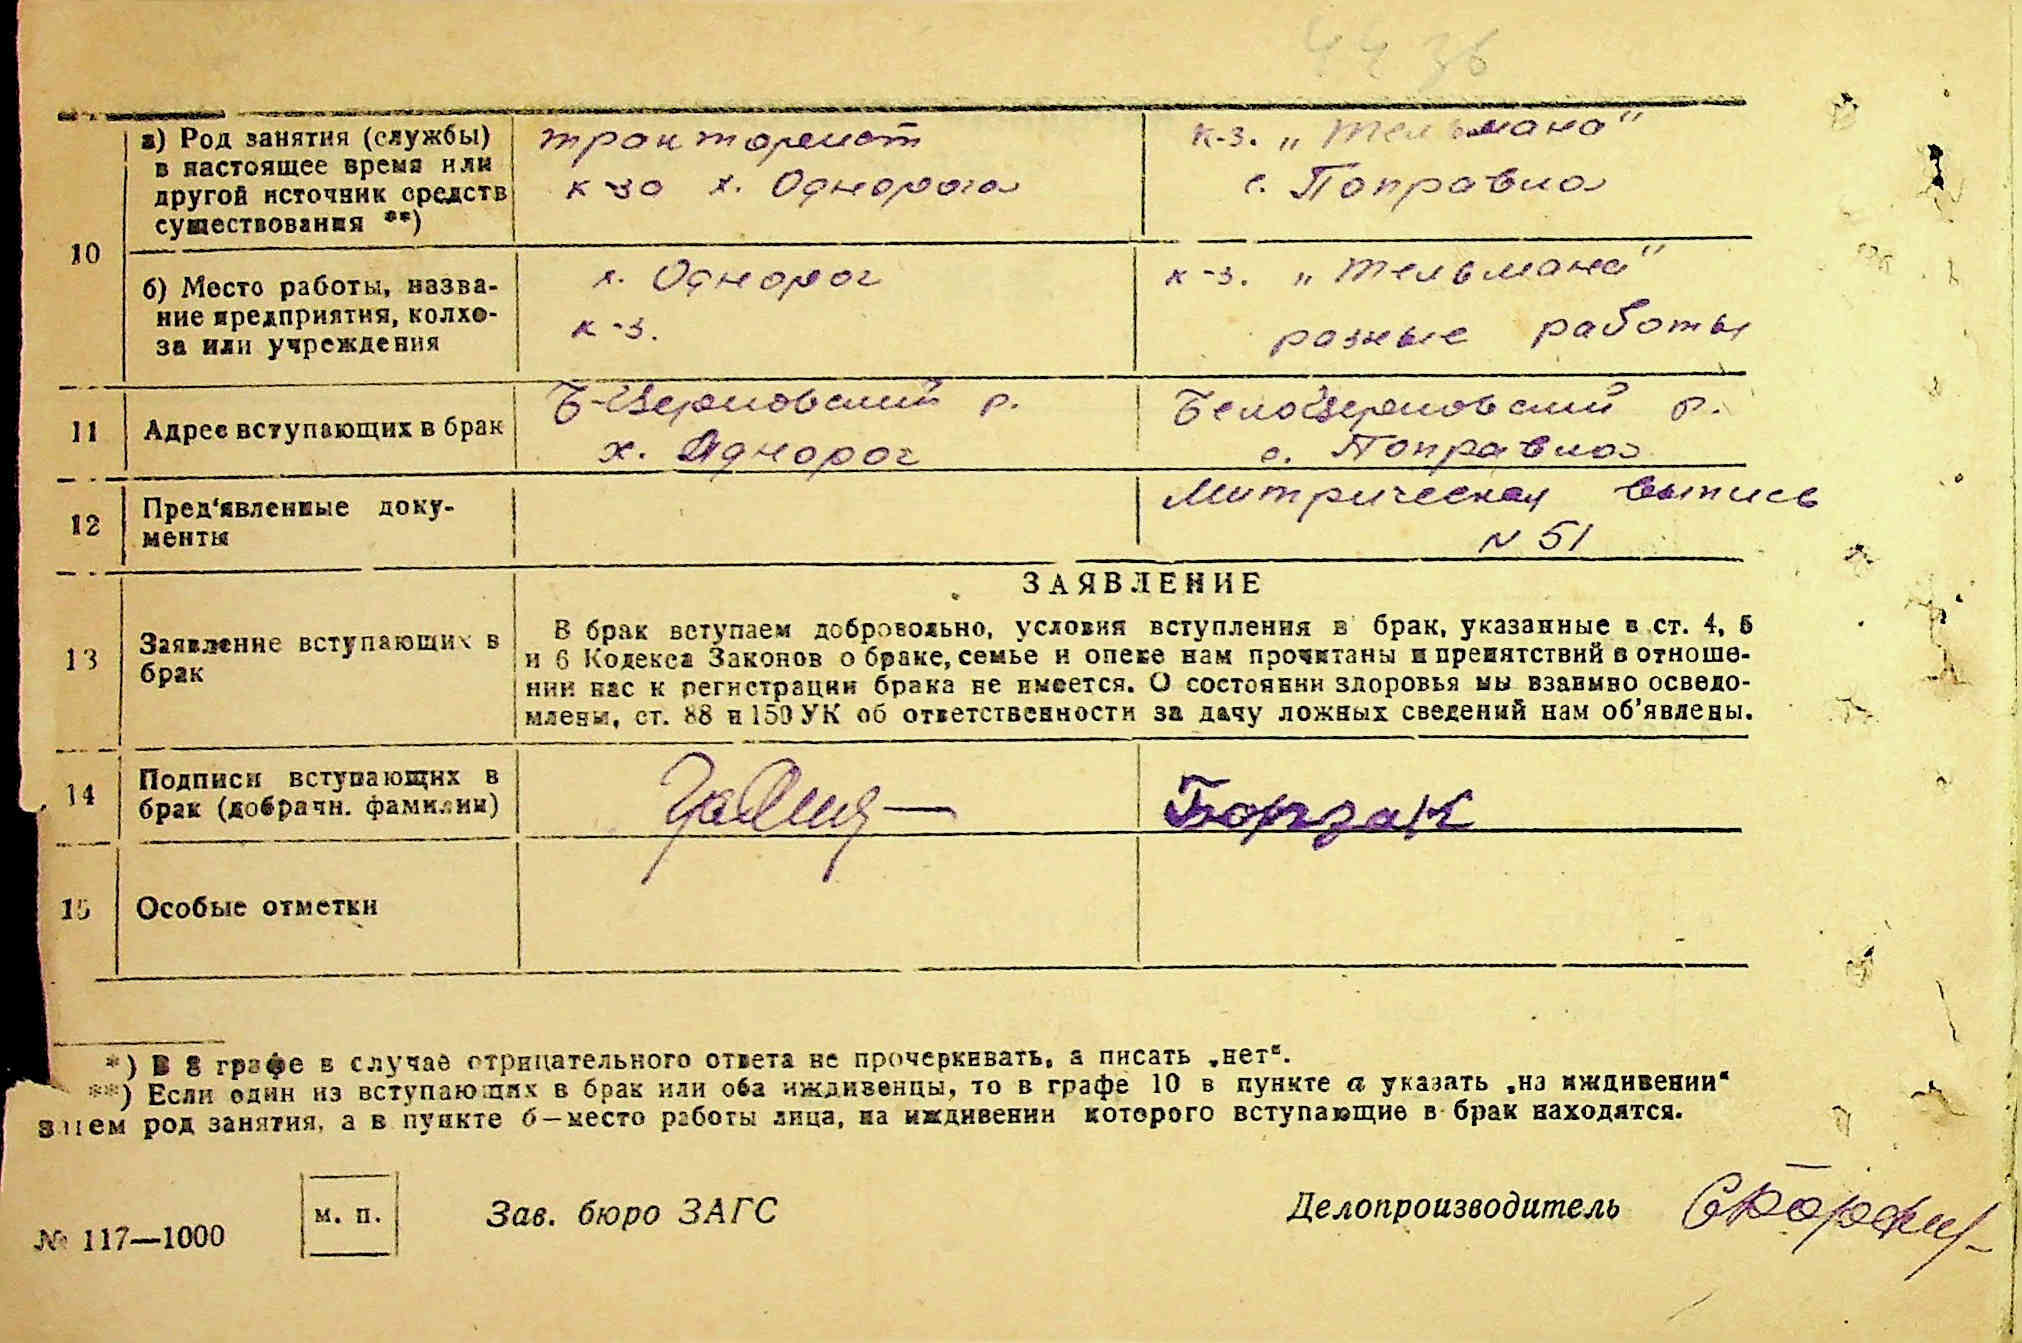 44 36
10
а) Род занятия (службы)
в настоящее время или
другой источник средств
существования **)
тракторист
к-за х. Однорога
к-з. „Тельмана"
с. Поправка
б) Место работы, назва-
ние предприятия, колхо-
за или учреждения
х. Однорог
к-з.
к-з. „Тельмана"
разные работы
11
Адрес вступающих в брак
Б-Церковский р.
х. Однорог
БелоЦерковский р.
с. Поправка
12
Пред'явленные доку-
менты
Митрическая выпись
N 51
13
Заявление вступающих в
брак
ЗАЯВЛЕНИЕ
В брак вступаем добровольно, условия вступления в брак, указанные в ст. 4, 5
и 6 Кодекса Законов о браке, семье и опеке нам прочитаны и препятствий в отноше-
нии нас к регистрации брака не имеется. О состоянии здоровья мы взаимно осведо-
млены, ст. 88 и 150 УК об ответственности за дачу ложных сведений нам об'явлены.
14
Подписи вступающих в
брак (добрачн. фамилии)
Борзак
15
Особые отметки
*) В 8 графе в случае отрицательного ответа не прочеркивать, а писать „нет".
**) Если один из вступающих в брак или оба иждивенцы, то в графе 10 в пункте а указать „на иждивении"
род занятия, а в пункте б—место работы лица, на иждивении которого вступающие в брак находятся.
№ 117—1000
м. п.
Зав. бюро ЗАГС
Делопроизводитель